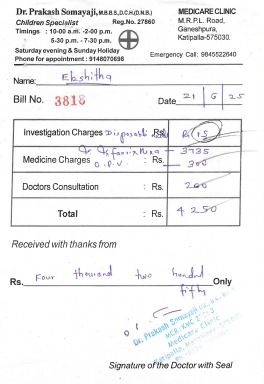 Dr. Prakash Somayaji, M.B.B.S.,D.C.H.(D.N.B.)
Children Specialist Reg.No. 27860
Timings : 10-00 a.m. -2-00 p.m.
5-30 p.m. - 7-30 p.m.
Saturday evening & Sunday Holiday
Phone for appointment : 9148070698
MEDICARE CLINIC
M.R.P.L. Road,
Ganeshpura,
Katipalla-575030.
Emergency Call: 9845522640
Name: Ekshitha
Bill No. 3818
Date 21 6 25
Investigation Charges Disposable : Rs. Rs 15
Medicine Charges : Rs. 3735
O.P.V. 300
Doctors Consultation : Rs. 200
Total : Rs. 4250
Received with thanks from
Rs. Four thousand two hundred fifty Only
Dr. Prakash Somayaji
Medicare Clinic
Signature of the Doctor with Seal